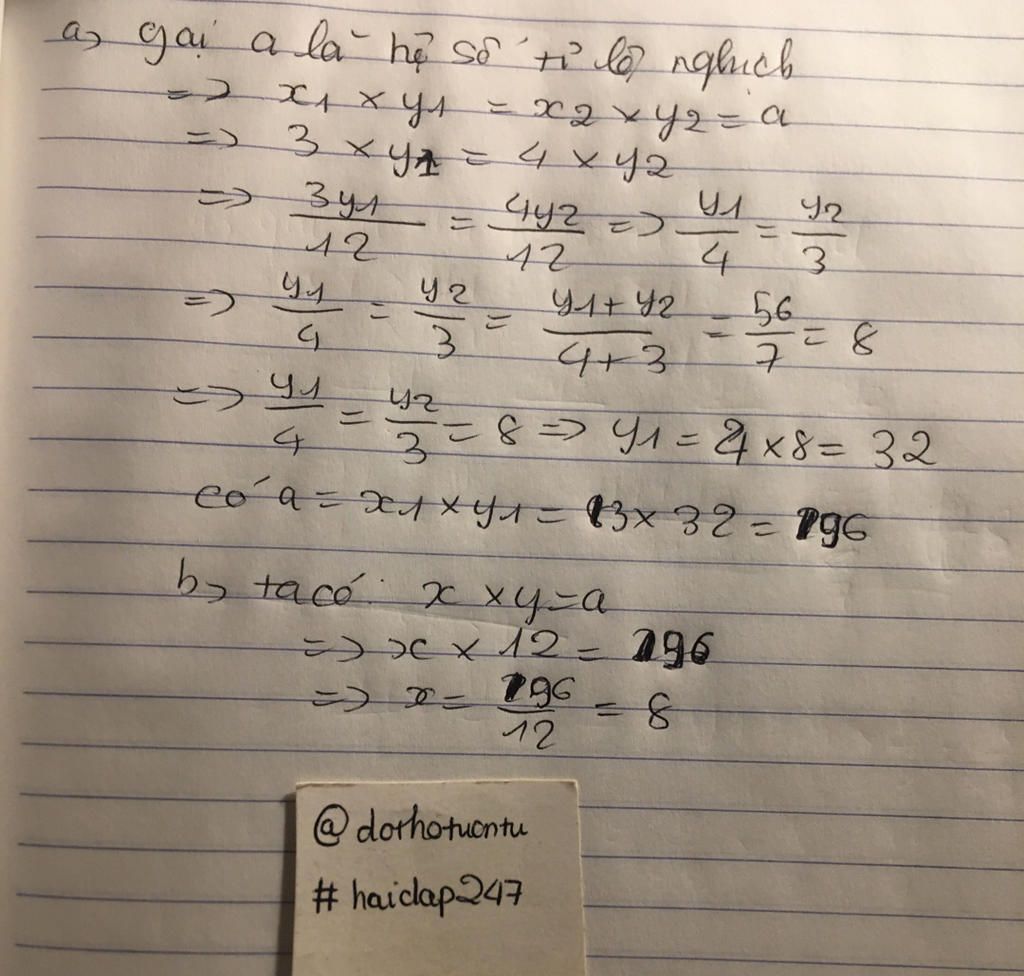 a, gọi a là hệ số tỉ lệ nghịch
=> x1 × y1 = x2 × y2 = a
=> 3 × y1 = 4 × y2
=> 3y1/12 = 4y2/12 => y1/4 = y2/3
=> y1/4 = y2/3 = y1+y2/4+3 = 56/7 = 8
=> y1/4 = y2/3 = 8 => y1 = 4 × 8 = 32
có a = x1 × y1 = 3 × 32 = 96
b, ta có: x × y = a
=> x × 12 = 96
=> x = 96/12 = 8
@dorhotuontu
# haidap247